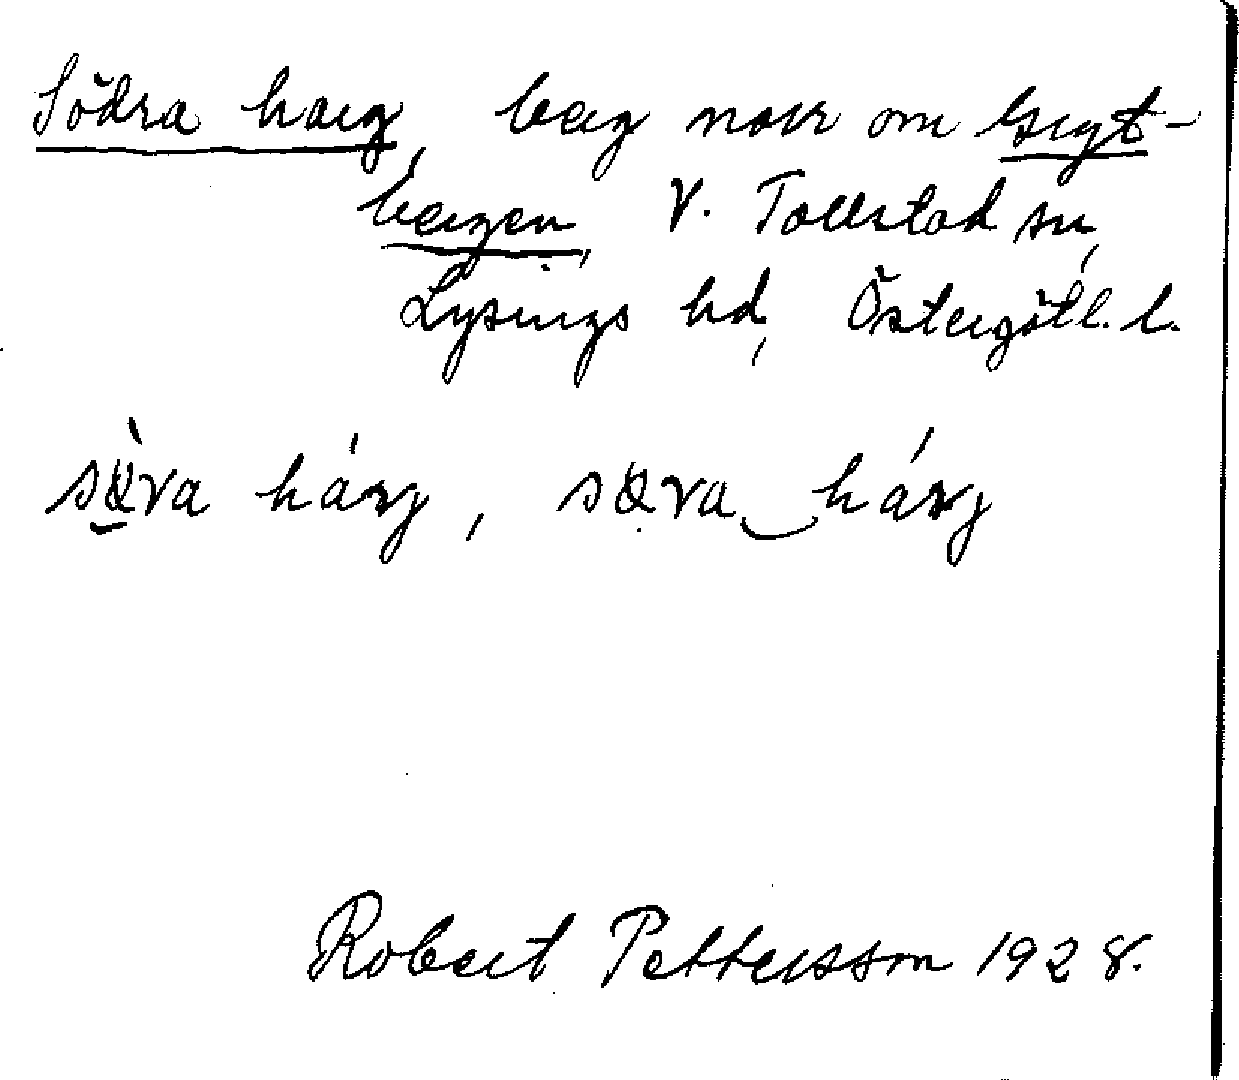 Södra harg, berg norr om Gryt-
bergen, V. Tollstad sn,
Lysings hd, Östergötl. l.
hárg, hárg
Robert Pettersson 1928.